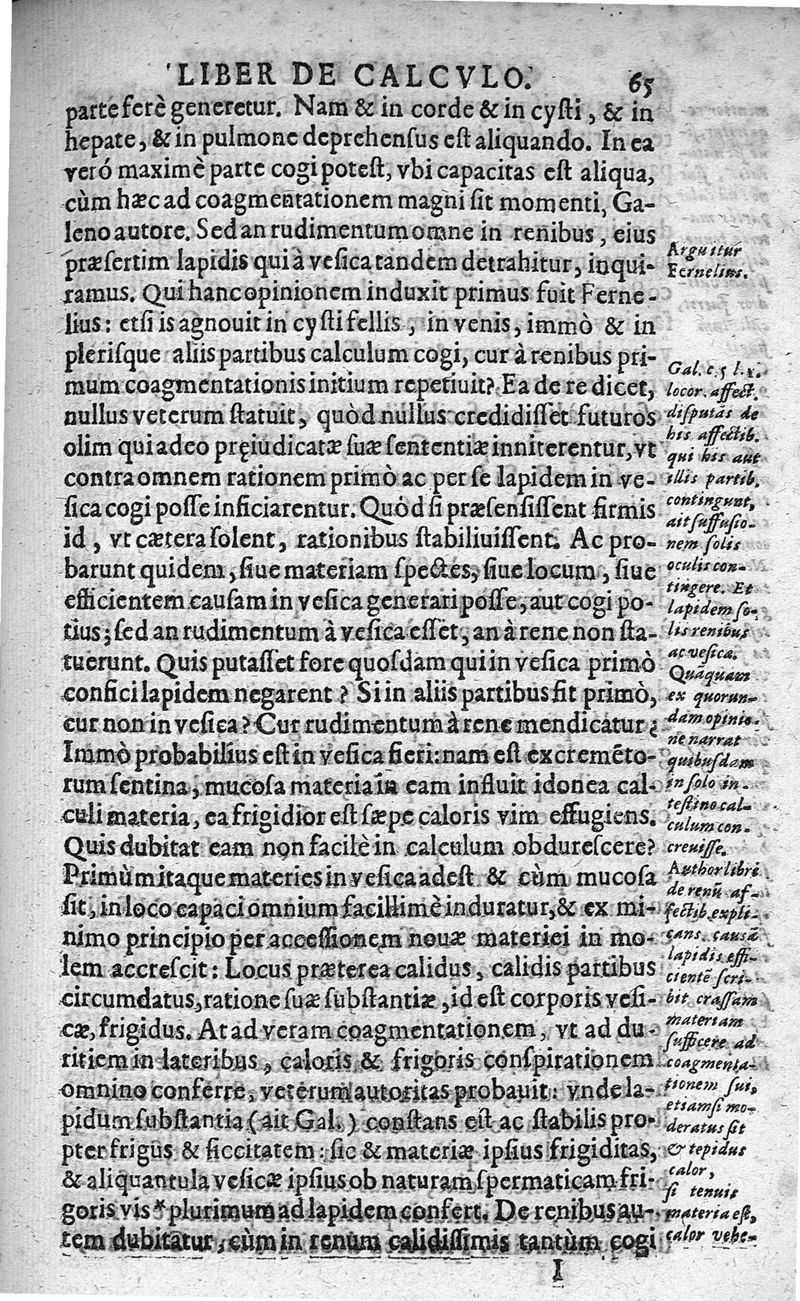 LIBER DE CALCVLO.
65
parte ferè generetur. Nam & in corde & in cysti, & in
hepate, & in pulmone deprehensus est aliquando. In ea
veró maximè parte cogi potest, vbi capacitas est aliqua,
cùm hæc ad coagmentationem magni sit momenti, Ga-
leno autore. Sed an rudimentum omne in renibus, eius
præsertim lapidis qui à vesica tandem detrahitur, inqui-
ramus. Qui hanc opinionem induxit primus fuit Ferne-
lius: etsi is agnouit in cysti fellis, in venis, immò & in
plerisque aliis partibus calculum cogi, cur à renibus pri-
mum coagmentationis initium repetiuit? Ea de re dicet,
nullus veterum statuit, quòd nullus credidisset futuros
olim qui adeo pręiudicatæ suæ sententiæ inniterentur, vt
contra omnem rationem primò ac per se lapidem in ve-
sica cogi posse inficiarentur. Quòd si præsensissent firmis
id, vt cætera solent, rationibus stabiliuissent. Ac pro-
barunt quidem, siue materiam spectes, siue locum, siue
efficientem causam in vesica generari posse, aut cogi po-
tius; sed an rudimentum à vesica esset, an à rene non sta-
tuerunt. Quis putasset fore quosdam qui in vesica primò
confici lapidem negarent? Si in aliis partibus fit primò,
cur non in vesica? Cur rudimentum à rene mendicatur?
Immò probabilius est in vesica fieri: nam est excremēto-
rum sentina, mucosa materia in eam influit idonea cal-
culi materia, ea frigidior est sæpe caloris vim effugiens.
Quis dubitat eam non facilè in calculum obdurescere?
Primùm itaque materies in vesica adest & cùm mucosa
sit, in loco capaci omnium facillimè induratur, & ex mi-
nimo principio per accessionem nouæ materiei in mo-
lem accrescit: Locus præterea calidus, calidis partibus
circumdatus, ratione suæ substantiæ, id est corporis vesi-
cæ, frigidus. At ad veram coagmentationem, vt ad du-
ritiem in lateribus, caloris & frigoris conspirationem
omnino conferre, veterum autoritas probauit: vnde la-
pidum substantia (ait Gal.) constans est ac stabilis pro-
pter frigus & siccitatem: sic & materiæ ipsius frigiditas,
& aliquantula vesicæ ipsius ob naturam spermaticam fri-
goris vis plurimum ad lapidem confert. De renibus au-
tem dubitatur, cùm in renum calidissimis tantùm cogi
I
Arguitur
Fernelius.
Gal. c. 5 l. 1.
locor. affect.
disputās de
his affectib.
qui his aut
illis partib.
contingunt,
ait suffusio-
nem solis
oculis con-
tingere. Et
lapidem so-
lis renibus
ac vesica.
Quāquam
ex quorun-
dam opinio-
ne narrat
quibusdam
in solo in-
testino cal-
culum con-
creuisse.
Author libri
de renū af-
fectib. expli-
cans causā
lapidis effi-
cientē scri-
bit crassam
materiam
sufficere ad
coagmenta-
tionem sui,
etiamsi mo-
deratus sit
& tepidus
calor,
si tenuis
materia est,
calor vehe-